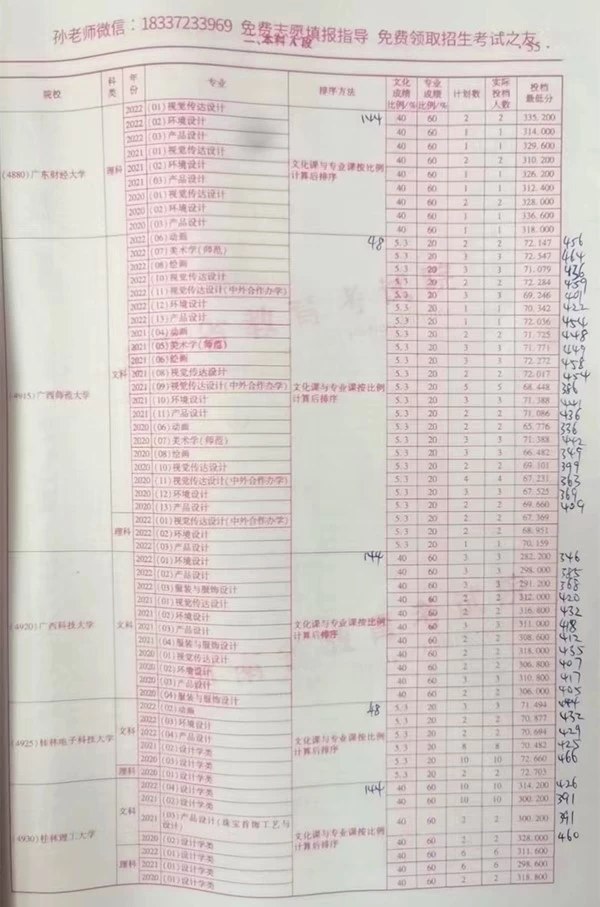 孙老师微信：18337233969 免费志愿填报指导 免费领取招生考试之友
二、本科A段 · 55 ·
院校 科类 年份 专业 排序方法 文化成绩比例/% 专业成绩比例/% 计划数 实际投档人数 投档最低分
(4880)广东财经大学 理科 文化课与专业课按比例计算后排序 144
2022 (01)视觉传达设计 40 60 2 2 335.200
2022 (02)环境设计 40 60 1 1 314.000
2022 (03)产品设计 40 60 1 1 329.600
2021 (01)视觉传达设计 40 60 2 2 310.200
2021 (02)环境设计 40 60 1 1 326.200
2021 (03)产品设计 40 60 1 1 312.400
2020 (01)视觉传达设计 40 60 2 2 328.000
2020 (02)环境设计 40 60 1 1 336.600
2020 (03)产品设计 40 60 1 1 318.000
(4915)广西师范大学 文科 文化课与专业课按比例计算后排序 48
2022 (06)动画 5.3 20 2 2 72.147 456
2022 (07)美术学(师范) 5.3 20 3 3 72.547 464
2022 (08)绘画 5.3 20 3 3 71.079 436
2022 (10)视觉传达设计 5.3 20 2 2 72.284 459
2022 (11)视觉传达设计(中外合作办学) 5.3 20 3 3 69.246 401
2022 (12)环境设计 5.3 20 1 1 70.342 422
2022 (13)产品设计 5.3 20 1 1 72.036 454
2021 (04)动画 5.3 20 2 2 71.725 448
2021 (05)美术学(师范) 5.3 20 3 3 71.771 449
2021 (06)绘画 5.3 20 3 3 72.272 458
2021 (08)视觉传达设计 5.3 20 2 2 72.017 454
2021 (09)视觉传达设计(中外合作办学) 5.3 20 5 5 68.448 386
2021 (10)环境设计 5.3 20 3 3 71.388 441
2021 (11)产品设计 5.3 20 2 2 71.086 436
2020 (06)动画 5.3 20 2 2 65.776 336
2020 (07)美术学(师范) 5.3 20 3 3 71.388 442
2020 (08)绘画 5.3 20 3 3 66.482 349
2020 (10)视觉传达设计 5.3 20 2 2 69.101 399
2020 (11)视觉传达设计(中外合作办学) 5.3 20 4 4 67.231 363
2020 (12)环境设计 5.3 20 3 3 67.525 369
2020 (13)产品设计 5.3 20 2 2 69.660 409
理科
2022 (01)视觉传达设计(中外合作办学) 5.3 20 2 2 67.369
2022 (02)环境设计 5.3 20 2 2 68.951
2022 (03)产品设计 5.3 20 1 1 70.159
(4920)广西科技大学 文科 文化课与专业课按比例计算后排序 144
2022 (01)环境设计 40 60 3 3 282.200 346
2022 (02)产品设计 40 60 3 3 298.000 385
2022 (03)服装与服饰设计 40 60 3 3 291.200 368
2021 (01)视觉传达设计 40 60 2 2 312.000 420
2021 (02)环境设计 40 60 2 2 316.800 432
2021 (03)产品设计 40 60 3 3 311.000 418
2021 (04)服装与服饰设计 40 60 2 2 308.600 412
2020 (01)视觉传达设计 40 60 2 2 318.000 435
2020 (02)环境设计 40 60 2 2 306.800 407
2020 (03)产品设计 40 60 3 3 310.800 417
2020 (04)服装与服饰设计 40 60 2 2 306.000 405
(4925)桂林电子科技大学 文科 文化课与专业课按比例计算后排序 48
2022 (02)动画 5.3 20 3 3 71.494 444
2022 (03)环境设计 5.3 20 2 2 70.877 432
2022 (04)产品设计 5.3 20 2 2 70.694 429
2021 (02)设计学类 5.3 20 8 8 70.482 425
2020 (03)设计学类 5.3 20 10 10 72.660 466
理科 2020 (01)设计学类 5.3 20 2 2 72.703
(4930)桂林理工大学 文科 文化课与专业课按比例计算后排序 144
2022 (04)设计学类 40 60 10 10 314.200 426
2021 (02)设计学类 40 60 10 10 300.200 391
2021 (03)产品设计(珠宝首饰工艺与设计) 40 60 2 2 300.200 391
2020 (02)设计学类 40 60 2 2 328.000 460
理科
2022 (01)设计学类 40 60 6 6 311.600
2021 (01)设计学类 40 60 6 6 298.600
2020 (01)设计学类 40 60 2 2 318.800